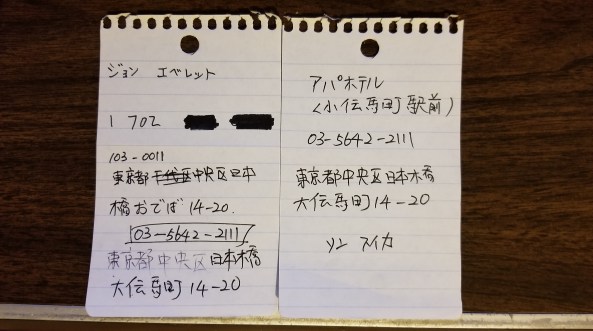 ジョン エベレット
1 702
103-0011
東京都千代区中央区日本
橋おでば14-20.
03-5642-2111
東京都中央区日本橋
大伝馬町14-20
アパホテル
(小伝馬町駅前)
03-5642-2111
東京都中央区日本橋
大伝馬町14-20
ソン スイカ